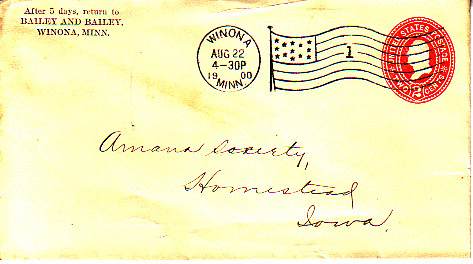 After 5 days, return to
BAILEY AND BAILEY,
WINONA, MINN.
WINONA
AUG 22
4-30P
19 00
MINN.
1
UNITED STATES POSTAGE
2 CENTS 2
Amana Society,
Homestead
Iowa.